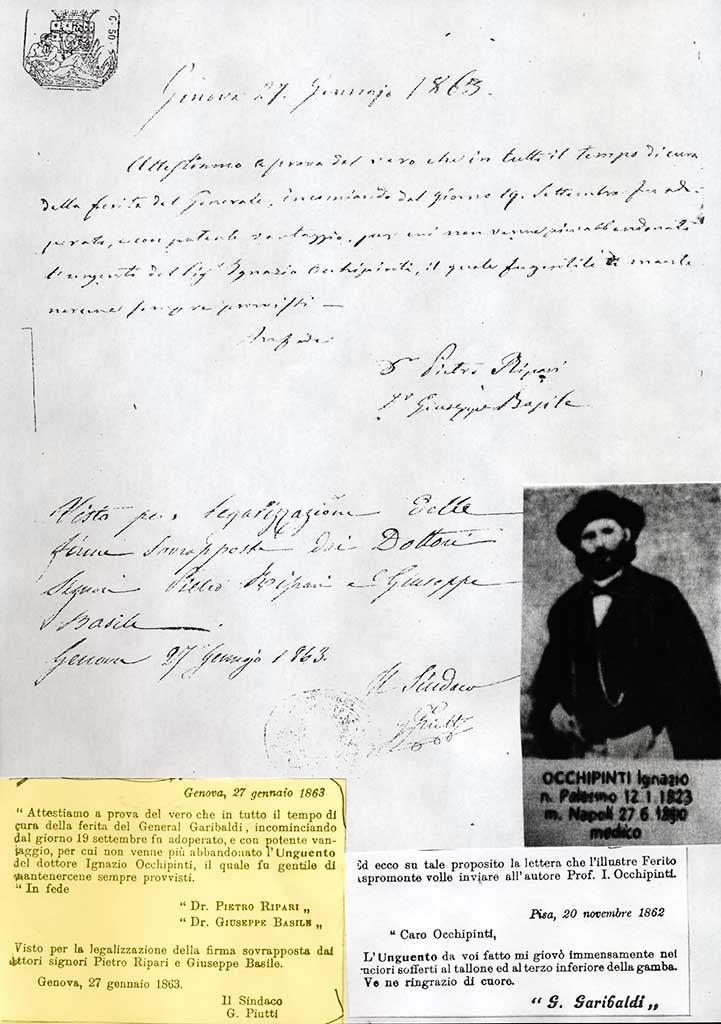 C. 50
Genova 27. Gennajo 1863.
Attestiamo a prova del vero che in tutto il tempo di cura
della ferita del Generale, incominciando dal giorno 19. Settembre fu ado-
perato, e con potente vantaggio, per cui non venne più abbandonato
l'unguento del Sigr Ignazio Occhipinti, il quale fu gentile di mante-
nercene sempre provvisti —
In fede
Dr Pietro Ripari
Dr Giuseppe Basile
Visto per legalizzazione delle
firme sovrapposte dai Dottori
Signori Pietro Ripari e Giuseppe
Basile
Genova 27 Gennajo 1863.
Il Sindaco
OCCHIPINTI Ignazio
n. Palermo 12.1.1823
m. Napoli 27.6.
medico
Genova, 27 gennaio 1863
“ Attestiamo a prova del vero che in tutto il tempo di
cura della ferita del General Garibaldi, incominciando
dal giorno 19 settembre fu adoperato, e con potente van-
taggio, per cui non venne più abbandonato l'Unguento
del dottore Ignazio Occhipinti, il quale fu gentile di
mantenercene sempre provvisti.
“ In fede
“ Dr. PIETRO RIPARI „
“ Dr. GIUSEPPE BASILE „
Visto per la legalizzazione della firma sovrapposta dai
ttori signori Pietro Ripari e Giuseppe Basile.
Genova, 27 gennaio 1863.
Il Sindaco
G. Piutti
Ed ecco su tale proposito la lettera che l'illustre Ferito
Aspromonte volle inviare all'autore Prof. I. Occhipinti.
Pisa, 20 novembre 1862
“ Caro Occhipinti,
L'Unguento da voi fatto mi giovò immensamente nei
ruciori sofferti al tallone ed al terzo inferiore della gamba.
Ve ne ringrazio di cuore.
“ G. Garibaldi „